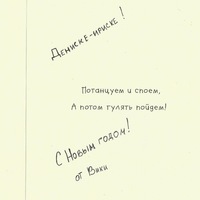 Дениске-ириске!
Потанцуем и споем,
А потом гулять пойдем!
С Новым годом!
от Вики